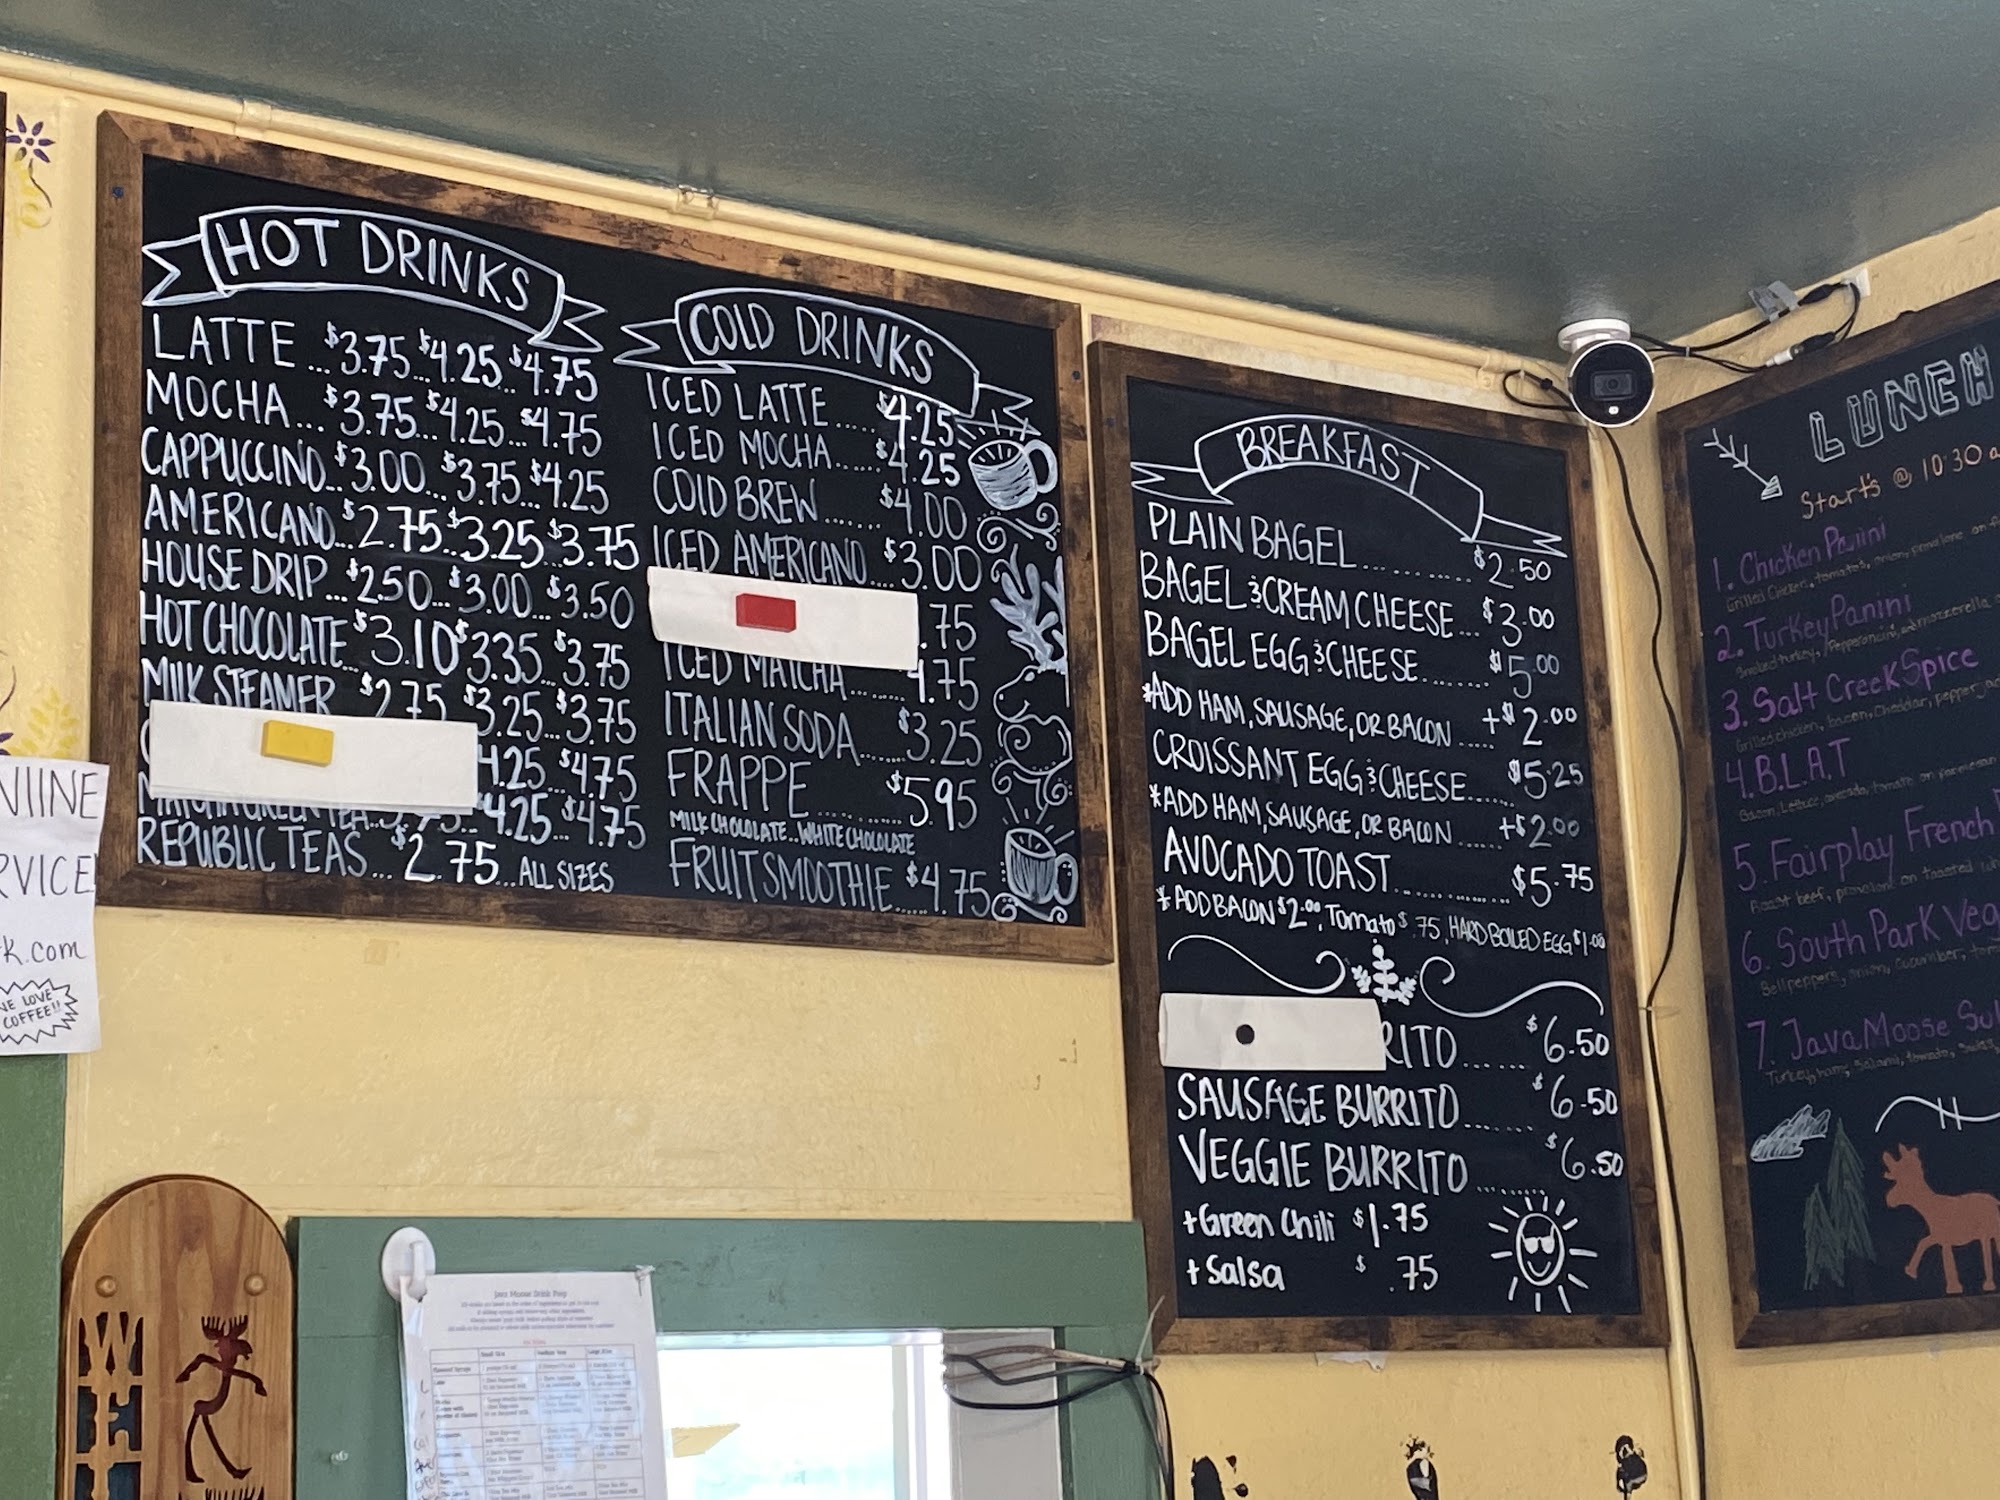 HOT DRINKS
LATTE ... $3.75 ... $4.25 ... $4.75
MOCHA ... $3.75 ... $4.25 ... $4.75
CAPPUCCINO ... $3.00 ... $3.75 ... $4.25
AMERICANO ... $2.75 ... $3.25 ... $3.75
HOUSE DRIP ... $2.50 ... $3.00 ... $3.50
HOT CHOCOLATE ... $3.10 $3.35 ... $3.75
MILK STEAMER $2.75 ... $3.25 ... $3.75
4.25 ... $4.75
MATCHA GREEN TEA ... 4.25 ... $4.75
REPUBLIC TEAS ... $2.75 ... ALL SIZES
COLD DRINKS
ICED LATTE ..... $4.25
ICED MOCHA ..... $4.25
COLD BREW ...... $4.00
ICED AMERICANO .... $3.00
.75
ICED MATCHA ....... 4.75
ITALIAN SODA ....... $3.25
FRAPPE .......... $5.95
MILK CHOCOLATE .. WHITE CHOCOLATE
FRUIT SMOOTHIE .... $4.75
BREAKFAST
PLAIN BAGEL .......... $2.50
BAGEL & CREAM CHEESE ... $3.00
BAGEL EGG & CHEESE ....... $5.00
*ADD HAM, SAUSAGE, OR BACON ..... +$2.00
CROISSANT EGG & CHEESE ....... $5.25
*ADD HAM, SAUSAGE, OR BACON ...... +$2.00
AVOCADO TOAST ............ $5.75
*ADD BACON $2.00, Tomato $.75, HARD BOILED EGG $1.00
RITO ....... $6.50
SAUSAGE BURRITO ....... $6.50
VEGGIE BURRITO ........ $6.50
+Green Chili $1.75
+Salsa $.75
LUNCH
Starts @ 10:30 a
1. Chicken Panini
Grilled Chicken, tomatos, onion, provolone on
2. Turkey Panini
Smoked turkey, Pepperoncini, and mozzerella
3. Salt Creek Spice
Grilled chicken, bacon, cheddar, pepper jack
4. B.L.A.T
Bacon, Lettuce, avocado, tomato on parmesan
5. Fairplay French
Roast beef, provolone on toasted
6. South Park Veg
Bell peppers, onion, cucumber, tom
7. Java Moose Sub
Turkey, ham, Salami, tomato, Swiss,
NIINE
RVICE
k.com
WE LOVE
COFFEE!!
WE
Java Moose Drink Prep
Small 12oz